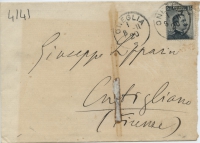 4141
ONEGLIA
ON
Giuseppe Lipparini
Cutigliano
(Firenze)